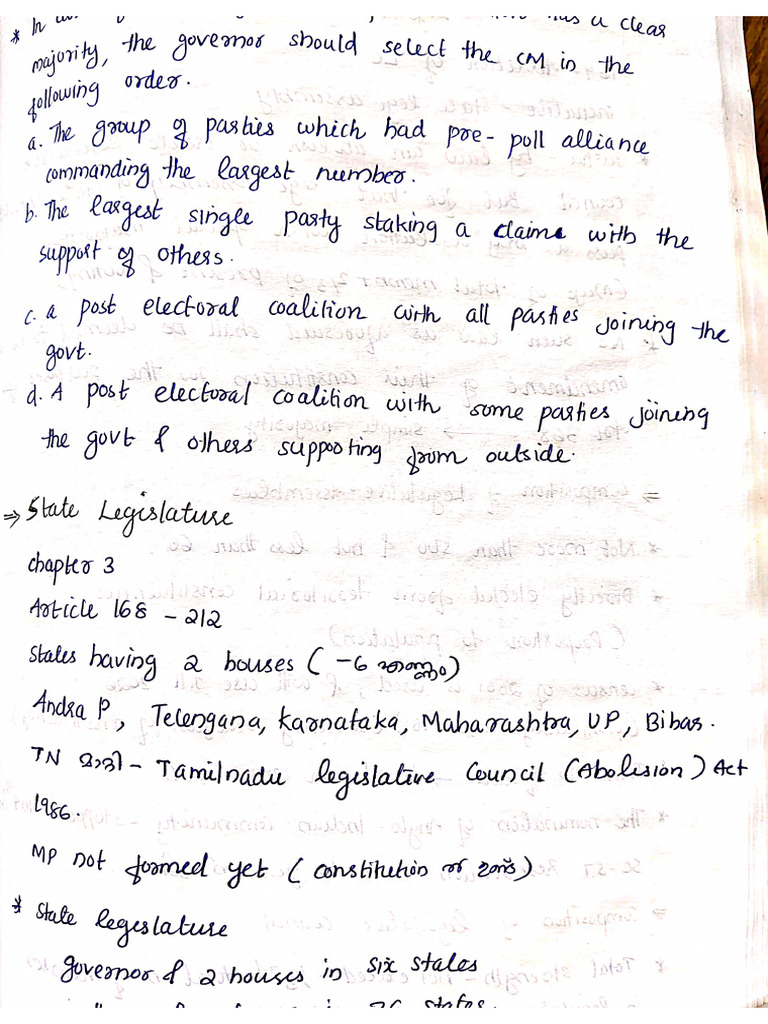 * In has a clear
majority, the governor should select the CM in the
following order.
a. The group of parties which had pre-poll alliance
commanding the largest number.
b. The largest single party staking a claim with the
support of others.
c. a post electoral coalition with all parties joining the
govt.
d. A post electoral coalition with some parties joining
the govt & others supporting from outside.
⇒ State Legislature
chapter 3
Article 168 - 212
States having 2 houses ( -6 എണ്ണം)
Andra P, Telengana, Karnataka, Maharashtra, UP, Bihar.
TN മാറി - Tamilnadu legislative Council (Abolision) Act
1986.
MP not formed yet ( constitution ൽ ഉണ്ട്)
* State legeslature
governor & 2 houses in six states